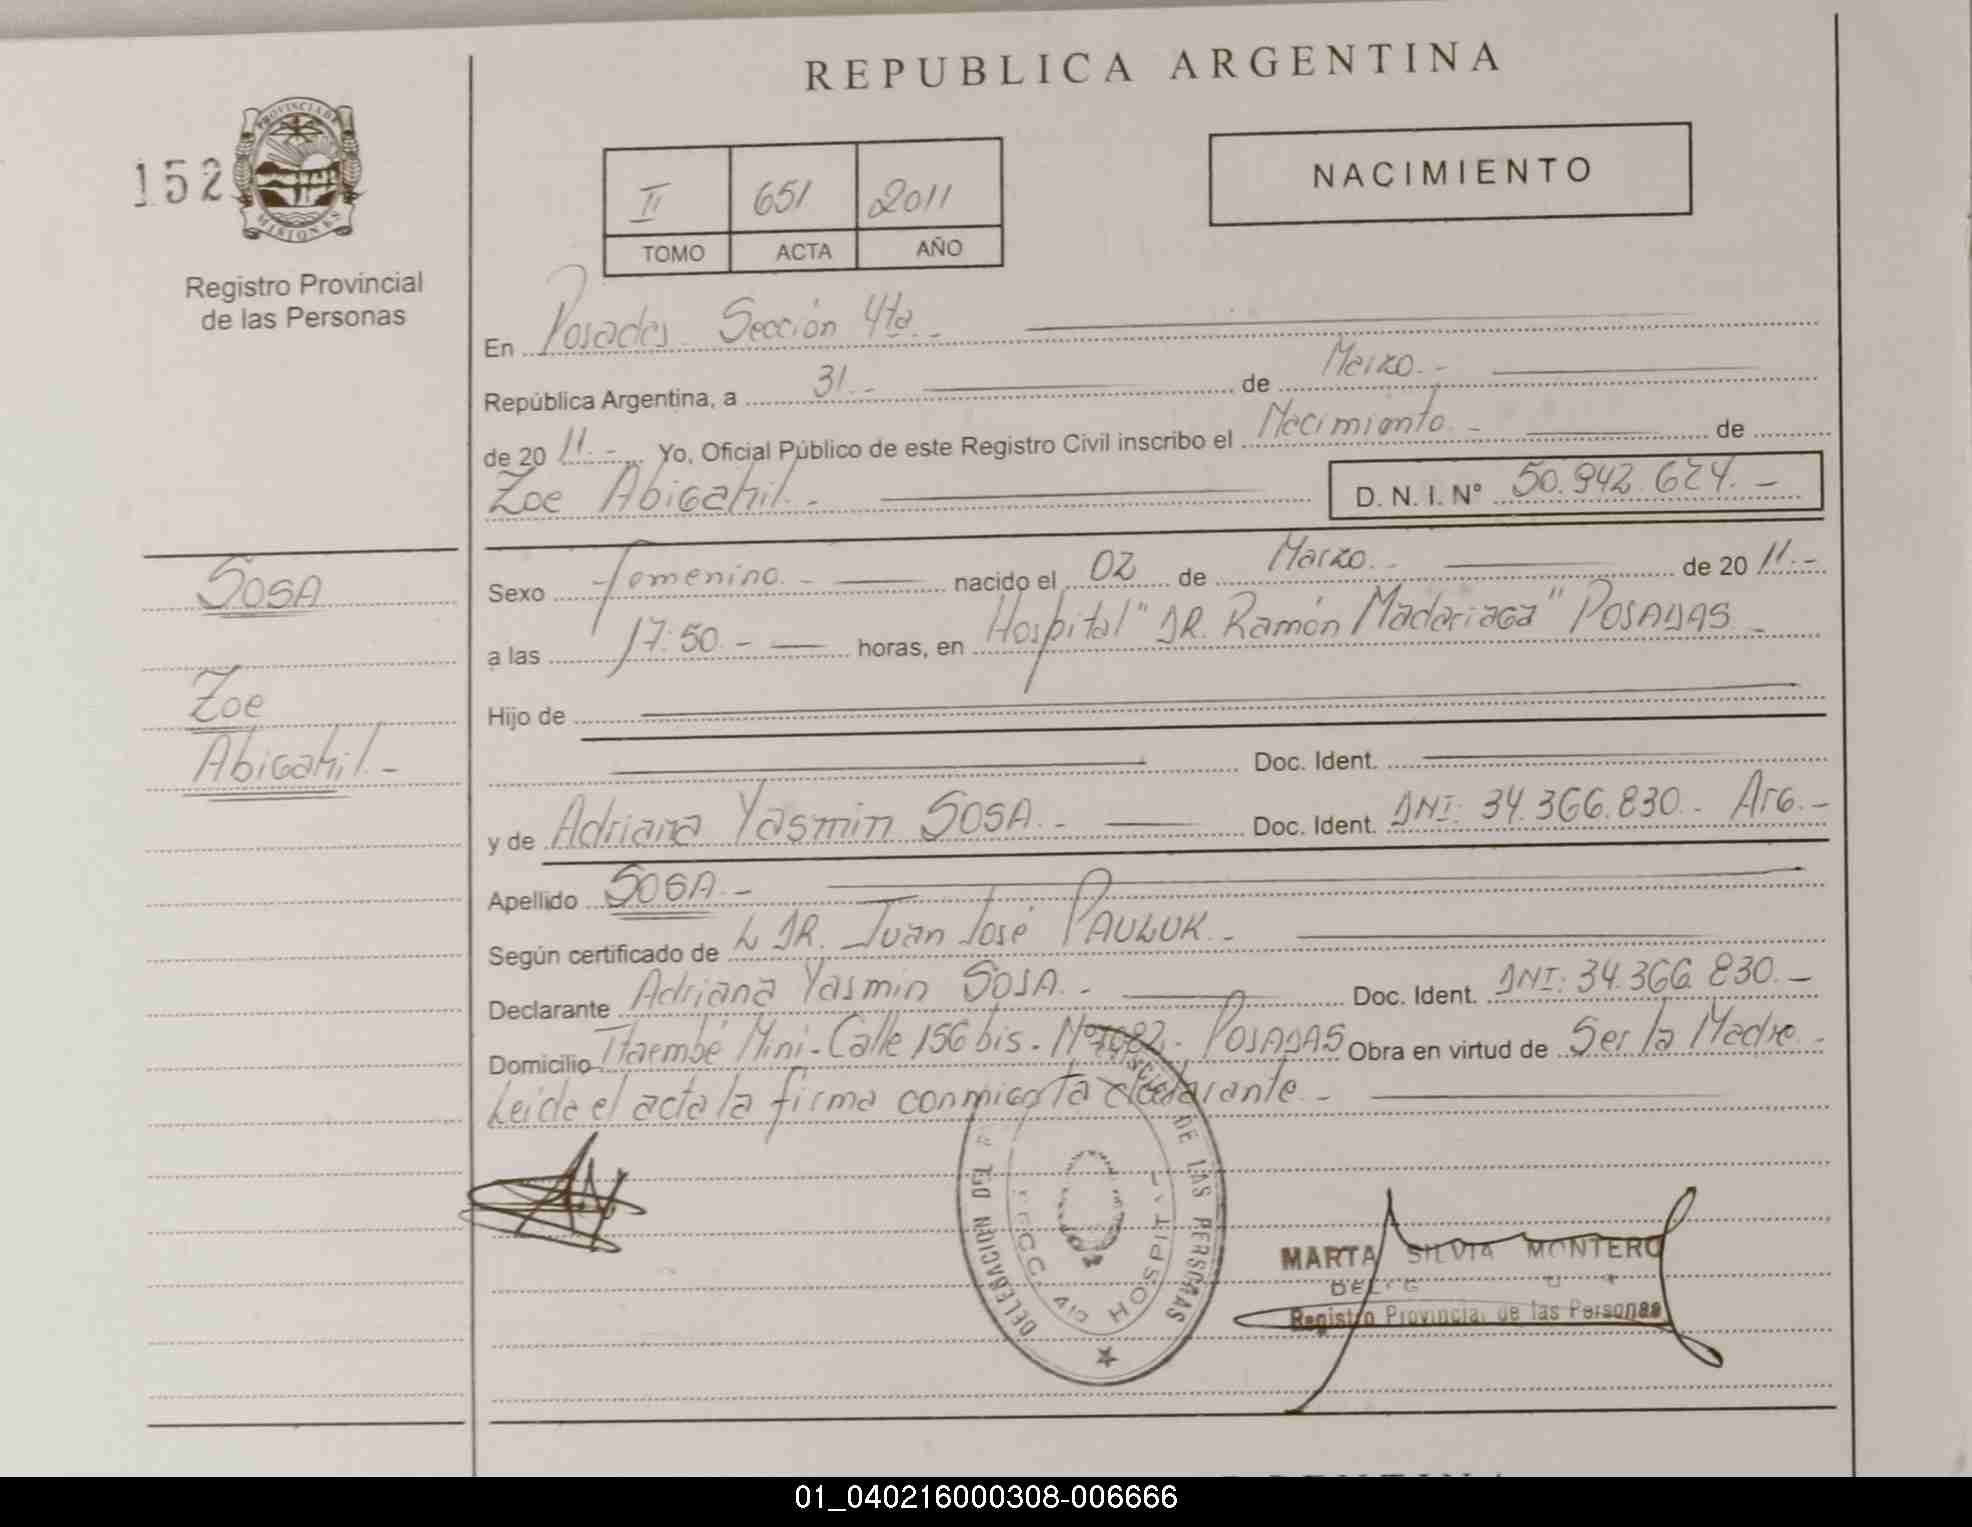 REPUBLICA ARGENTINA
152
PROVINCIA DE
MISIONES
Registro Provincial
de las Personas
NACIMIENTO
II 651 2011
TOMO ACTA AÑO
En Posadas Sección 4ta.-
República Argentina, a 31.- de Marzo.-
de 2011.- Yo, Oficial Público de este Registro Civil inscribo el Nacimiento.- de
Zoe Abigahil.- D. N. I. Nº 50.942.624.-
SOSA
Zoe
Abigahil.-
Sexo Femenino.- nacido el 02 de Marzo.- de 2011.-
a las 17:50.- horas, en Hospital "DR. Ramón Madariaga" POSADAS.-
Hijo de
Doc. Ident.
y de Adriana Yasmin SOSA.- Doc. Ident. DNI: 34.366.830.- Arg.-
Apellido SOSA.-
Según certificado de DR. Juan José PAULUK.-
Declarante Adriana Yasmin SOSA.- Doc. Ident. DNI: 34.366.830.-
Domicilio Itaembé Mini-Calle 156 bis.- POSADAS Obra en virtud de Ser la Madre.-
Leida el acta la firma conmigo la declarante.-
DE LAS PERSONAS
HOSPIT
MARTA SILVIA MONTERO
Registro Provincial de las Personas
01_040216000308-006666